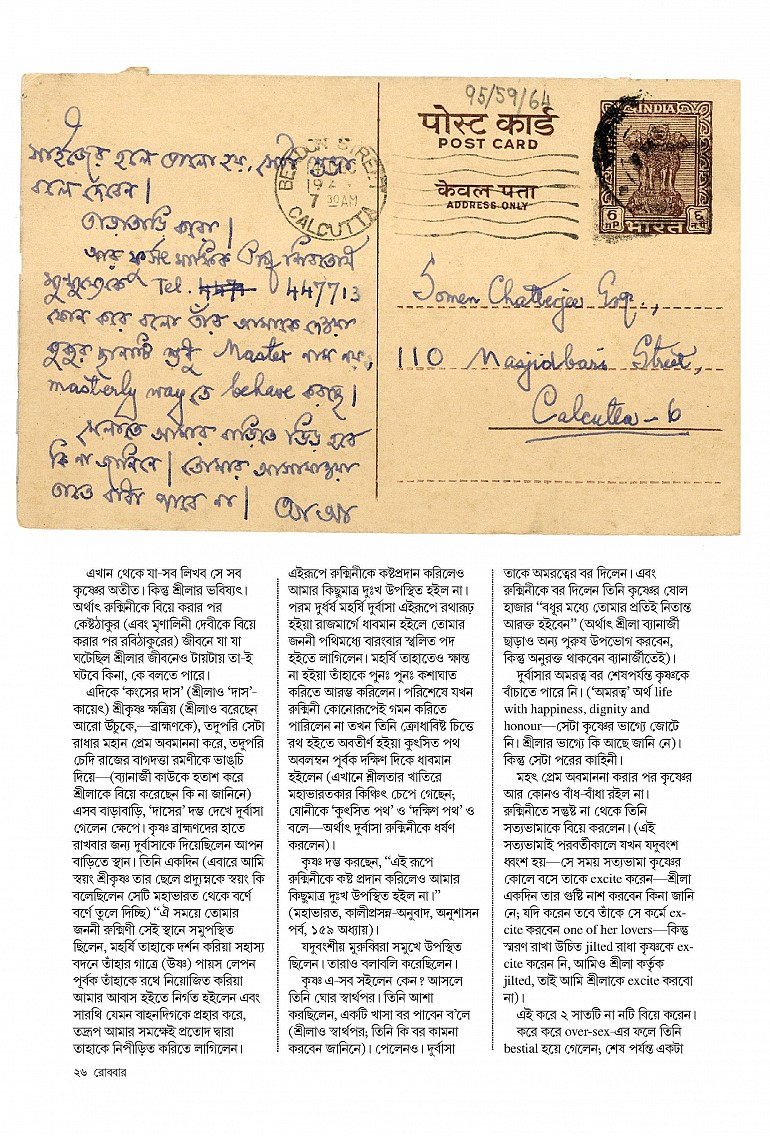 ২
সাইজের হলে ভালো হয়, সেটা ওকে
বলে দেবেন।
তাড়াতাড়ি করো।
আর ফুর্সৎ মাফিক
Tel. 447713
ফোন করে বলো তাঁর আমাকে দেওয়া
কুকুর ছানাটি শুধু Master নাম নয়,
masterly way তে behave করছে।
আমার বাড়িতে ভিড় হবে
কি না জানিনে। তোমার আসাযাওয়া
তাতে বাধা পাবে না।
95/59/64
पोस्ट कार्ड
POST CARD
केवल पता
ADDRESS ONLY
BEADON STREET
7 30 AM
CALCUTTA
INDIA
6 nP
६ न.पै.
भारत
Somen Chatterjee Esq.,
110 Masjidbari Street,
Calcutta - 6
এখান থেকে যা-সব লিখব সে সব
কৃষ্ণের অতীত। কিন্তু শ্রীলার ভবিষ্যৎ।
অর্থাৎ রুক্মিনীকে বিয়ে করার পর
কেষ্টঠাকুর (এবং মৃণালিনী দেবীকে বিয়ে
করার পর রবিঠাকুরের) জীবনে যা যা
ঘটেছিল শ্রীলার জীবনেও টায়টায় তা-ই
ঘটবে কিনা, কে বলতে পারে।
এদিকে ‘কংসের দাস’ (শ্রীলাও ‘দাস’-
কায়েৎ) শ্রীকৃষ্ণ ক্ষত্রিয় (শ্রীলাও বরেছেন
আরো উঁচুকে,—ব্রাহ্মণকে), তদুপরি সেটা
রাধার মহান প্রেম অবমাননা করে, তদুপরি
চেদি রাজের বাগদত্তা রমণীকে ভাঙচি
দিয়ে—(ব্যানার্জী কাউকে হতাশ করে
শ্রীলাকে বিয়ে করেছেন কি না জানিনে)
এসব বাড়াবাড়ি, ‘দাসের’ দম্ভ দেখে দুর্বাসা
গেলেন ক্ষেপে। কৃষ্ণ ব্রাহ্মণদের হাতে
রাখবার জন্য দুর্বাসাকে দিয়েছিলেন আপন
বাড়িতে স্থান। তিনি একদিন (এবারে আমি
স্বয়ং শ্রীকৃষ্ণ তার ছেলে প্রদ্যুম্নকে স্বয়ং কি
বলেছিলেন সেটি মহাভারত থেকে বর্ণে
বর্ণে তুলে দিচ্ছি) “ঐ সময়ে তোমার
জননী রুক্মিণী সেই স্থানে সমুপস্থিত
ছিলেন, মহর্ষি তাহাকে দর্শন করিয়া সহাস্য
বদনে তাঁহার গাত্রে (উষ্ণ) পায়স লেপন
পূর্বক তাঁহাকে রথে নিয়োজিত করিয়া
আমার আবাস হইতে নির্গত হইলেন এবং
সারথি যেমন বাহনদিগকে প্রহার করে,
তদ্রূপ আমার সমক্ষেই প্রতোদ দ্বারা
তাহাকে নিপীড়িত করিতে লাগিলেন।
এইরূপে রুক্মিনীকে কষ্টপ্রদান করিলেও
আমার কিছুমাত্র দুঃখ উপস্থিত হইল না।
পরম দুর্ধর্ষ মহর্ষি দুর্বাসা এইরূপে রথারূঢ়
হইয়া রাজমার্গে ধাবমান হইলে তোমার
জননী পথিমধ্যে বারংবার স্খলিত পদ
হইতে লাগিলেন। মহর্ষি তাহাতেও ক্ষান্ত
না হইয়া তাঁহাকে পুনঃ পুনঃ কশাঘাত
করিতে আরম্ভ করিলেন। পরিশেষে যখন
রুক্মিনী কোনোরূপেই গমন করিতে
পারিলেন না তখন তিনি ক্রোধাবিষ্ট চিত্তে
রথ হইতে অবতীর্ণ হইয়া কুৎসিত পথ
অবলম্বন পূর্বক দক্ষিণ দিকে ধাবমান
হইলেন (এখানে শ্লীলতার খাতিরে
মহাভারতকার কিঞ্চিৎ চেপে গেছেন;
যোনীকে ‘কুৎসিত পথ’ ও ‘দক্ষিণ পথ’ ও
বলে—অর্থাৎ দুর্বাসা রুক্মিনীকে ধর্ষণ
করলেন)।
কৃষ্ণ দম্ভ করছেন, “এই রূপে
রুক্মিনীকে কষ্ট প্রদান করিলেও আমার
কিছুমাত্র দুঃখ উপস্থিত হইল না।”
(মহাভারত, কালীপ্রসন্ন-অনুবাদ, অনুশাসন
পর্ব, ১৫৯ অধ্যায়)।
যদুবংশীয় মুরুব্বিরা সমুখে উপস্থিত
ছিলেন। তারাও বলাবলি করেছিলেন।
কৃষ্ণ এ-সব সইলেন কেন? আসলে
তিনি ঘোর স্বার্থপর। তিনি আশা
করছিলেন, একটি খাসা বর পাবেন ব’লে
(শ্রীলাও স্বার্থপর; তিনি কি বর কামনা
করবেন জানিনে)। পেলেনও। দুর্বাসা
তাকে অমরত্বের বর দিলেন। এবং
রুক্মিনীকে বর দিলেন তিনি কৃষ্ণের ষোল
হাজার “বধূর মধ্যে তোমার প্রতিই নিতান্ত
আরক্ত হইবেন” (অর্থাৎ শ্রীলা ব্যানার্জি
ছাড়াও অন্য পুরুষ উপভোগ করবেন,
কিন্তু অনুরক্ত থাকবেন ব্যানার্জীতেই)।
দুর্বাসার অমরত্ব বর শেষপর্যন্ত কৃষ্ণকে
বাঁচাতে পারে নি। (‘অমরত্ব’ অর্থ life
with happiness, dignity and
honour—সেটা কৃষ্ণের ভাগ্যে জোটে
নি। শ্রীলার ভাগ্যে কি আছে জানি নে)।
কিন্তু সেটা পরের কাহিনী।
মহৎ প্রেম অবমাননা করার পর কৃষ্ণের
আর কোনও বাঁধা-বাঁধা রইল না।
রুক্মিনীতে সন্তুষ্ট না থেকে তিনি
সত্যভামাকে বিয়ে করলেন। (এই
সত্যভামাই পরবর্তীকালে যখন যদুবংশ
ধ্বংশ হয়—সে সময় সত্যভামা কৃষ্ণের
কোলে বসে তাকে excite করেন—শ্রীলা
একদিন তার গুষ্টি নাশ করবেন কিনা জানি
নে; যদি করেন তবে তাঁকে সে কর্মে ex-
cite করবেন one of her lovers—কিন্তু
স্মরণ রাখা উচিত jilted রাধা কৃষ্ণকে ex-
cite করেন নি, আমিও শ্রীলা কর্তৃক
jilted, তাই আমি শ্রীলাকে excite করবো
না)।
এই করে ২ সাতটি না নটি বিয়ে করেন।
করে করে over-sex-এর ফলে তিনি
bestial হয়ে গেলেন; শেষ পর্যন্ত একটা
২৬ রোববার